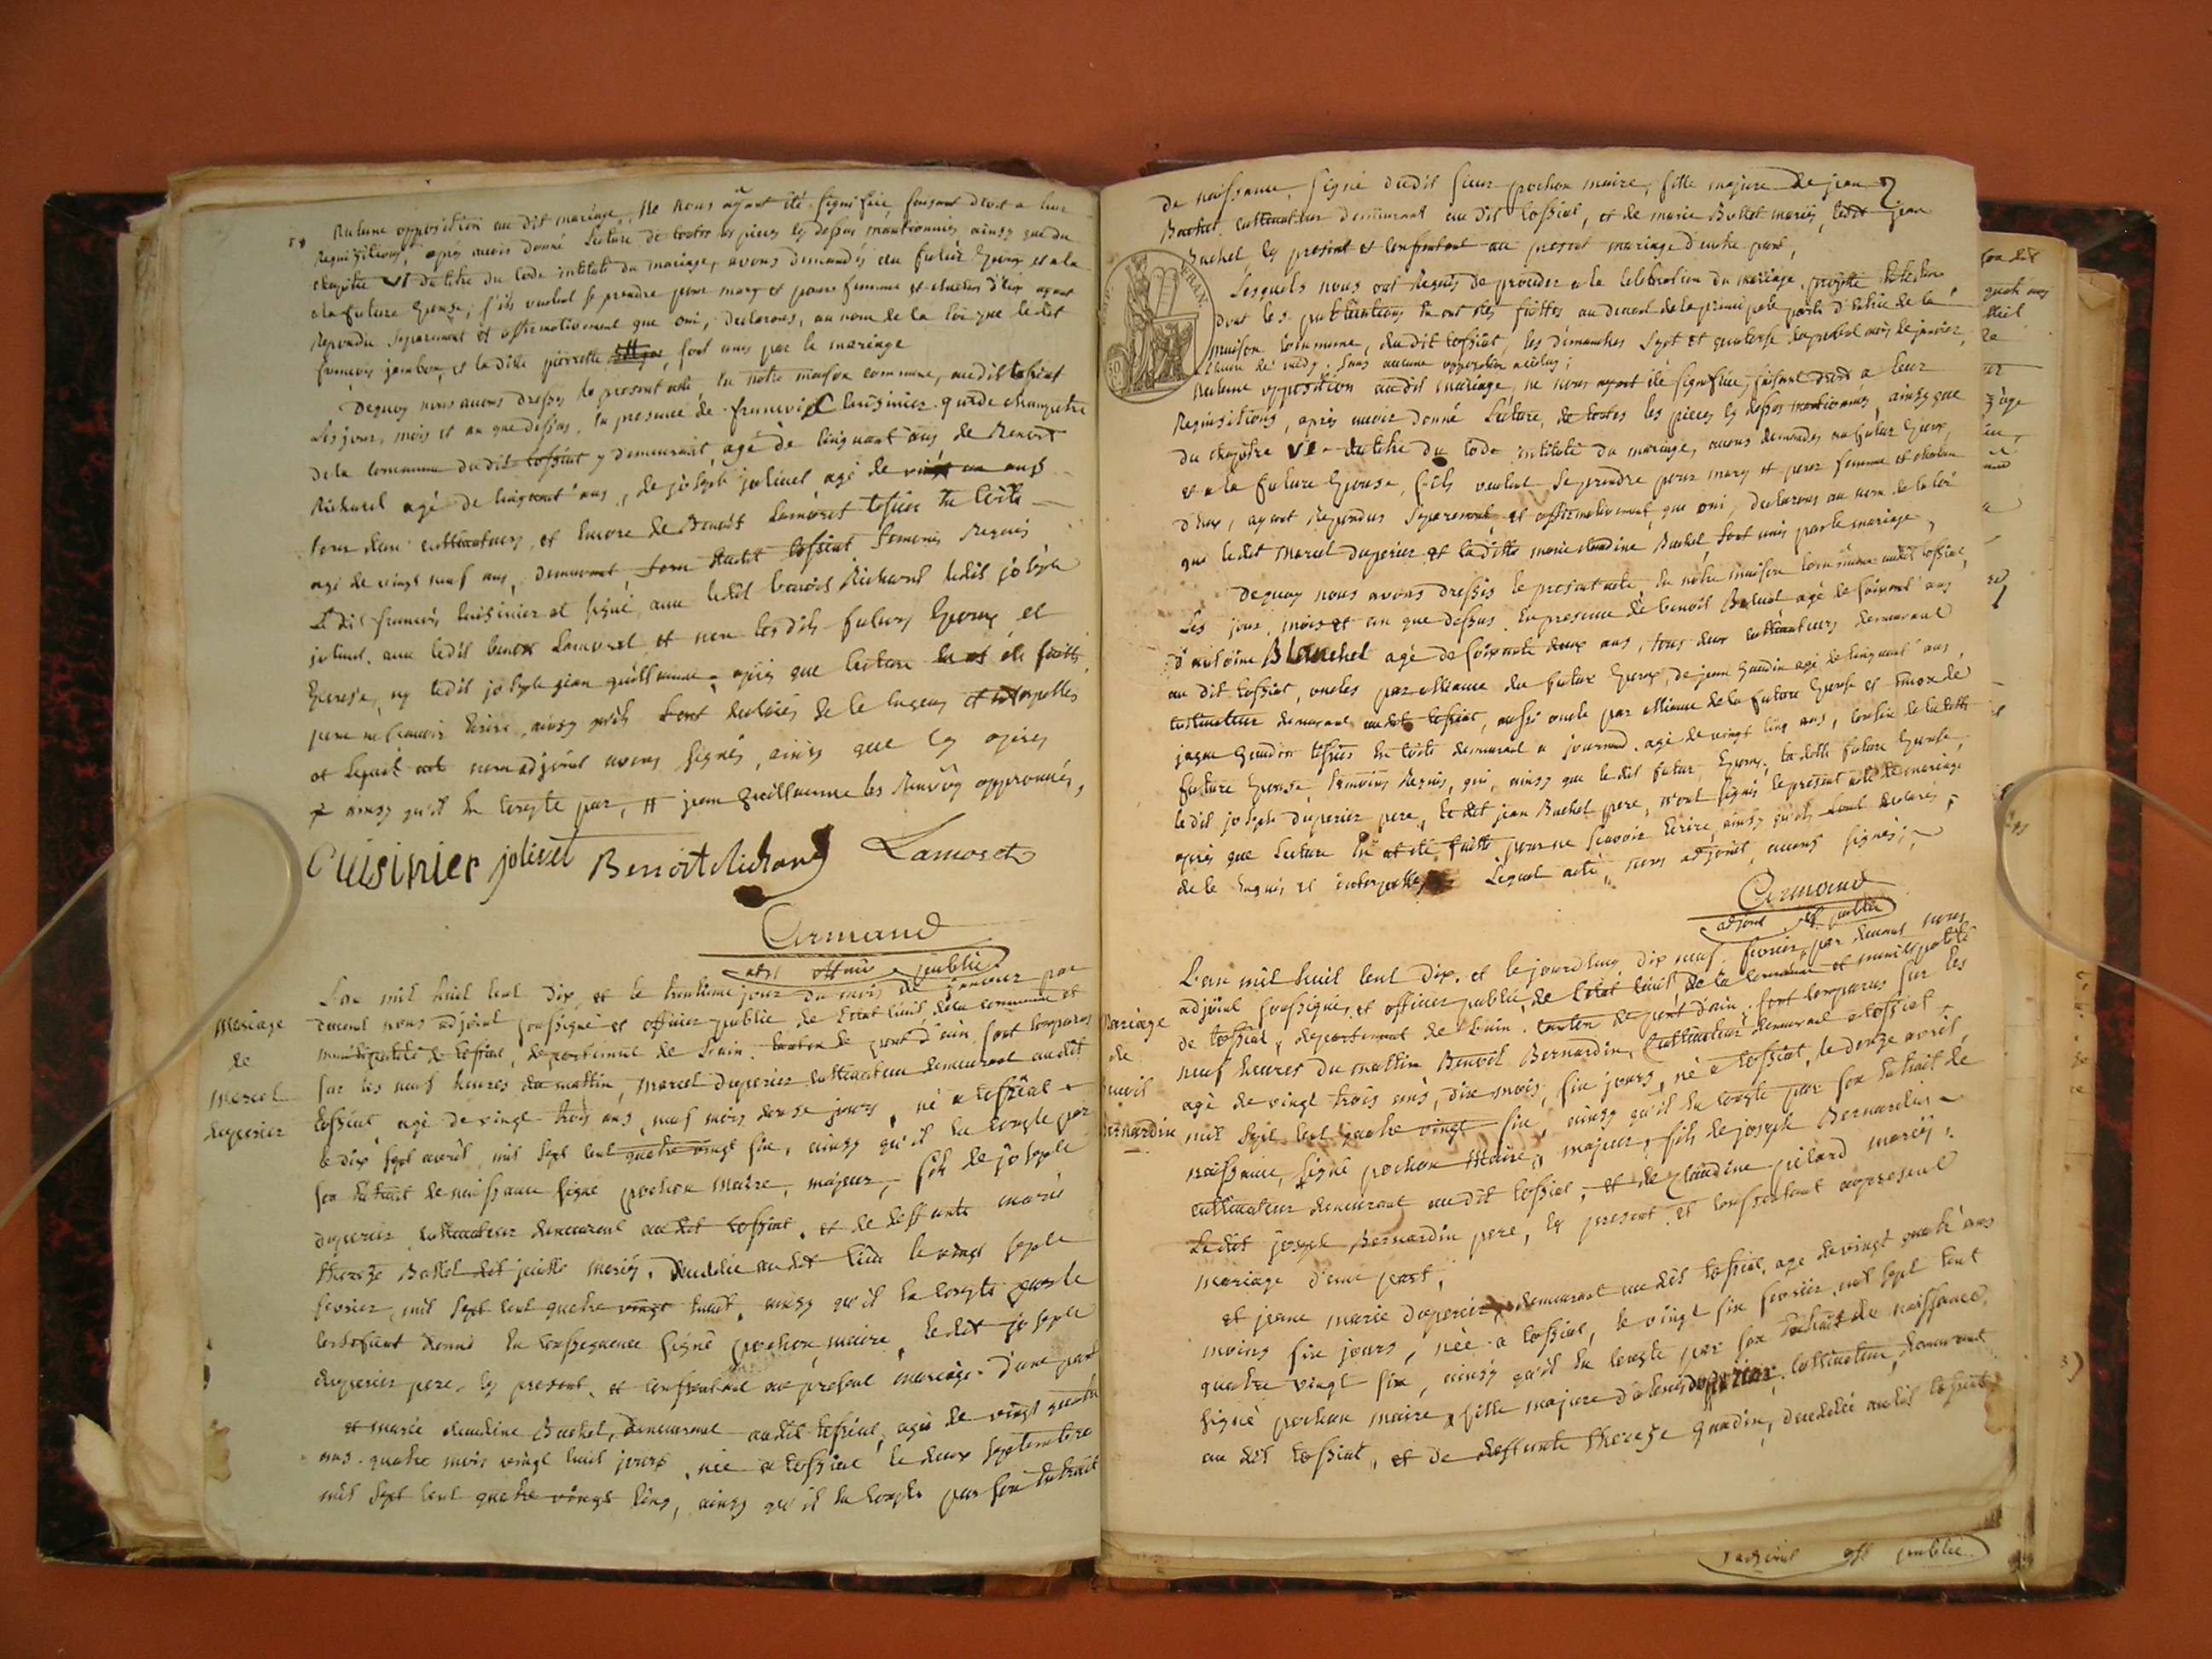 Aucune opposition au dit mariage, ne nous ayant été signifiée, faisant droit a leur
Requisitions, après avoir donné Lecture de toutes les pieces cy dessus mentionnées ainsy que du
chapitre VI du titre du Code intitulé du mariage, avons demandés au futur Epoux et a la
a la future Epouse, s'ils veulent se prendre pour mary et pour femme et chacun d'eux ayant
Repondu separement et affirmativement que oui, declarons, au nom de la loi que ledit
françois jambon, et la dite pierrette sont unis par le mariage
Dequoy nous avons dressés le present acte en notre maison commune, audit tossiat
Les jour, mois et an que dessus, en presence de françois Cuisinier garde champetre
de la commune dudit tossiat y demeurant, agé de cinquant ans de Benoit
Richard agé de cinquant ans, de joseph jolivet agé de vingt un ans
tous deux cultivateurs, et encore de Benoit Lamoret
agé de vingt neuf ans, demeurant, tous audit tossiat temoins Requis
Ledit françois cuisinier et signé avec ledit benoit Richard ledit joseph
jolivet. avec ledit benoit Lamoret et non lesdits futurs Epoux et
Epouse, ny ledit joseph jean guillaume, après que lecture en et été faitte
pour ne scavoir Ecrire, ainsy qu'ils sont declarés de le enquis et interpellés
et Lequel acte nous adjoint avons signés, ainsy que
ainsy qu'il en conste par, et jean guillaume les Renvoy approuvés,
Cuisinier jolivet Benoit Richard Lamoret
Armand
adjt officier public
L'an mil huit cent dix, et le trentieme jour du mois de janvier par
Mariage
de
Marcel
duperier
devant nous adjoint soussigné et officier public de l'état civil de la commune et
municipalité de tossiat, departement de L'ain. canton de pont d'ain, sont comparus
sur les neuf heures du mattin, Marcel duperier cultivateur demeurant audit
tossiat agé de vingt trois ans, neuf mois douse jours, né a tossiat
le dix sept avril mil sept cent quatre vingt six, ainsy qu'il en conste par
son Extrait de naissance signé pochon Maire, majeur, fils de joseph
duperier cultivateur demeurant audit tossiat, et de deffunte marie
thereze Ballet dit juille mariés. decedée audit lieu le vingt sept
fevrier, mil sept cent quatre vingt huit, ainsy qu'il en conste par le
certificat donné en consequence signé pochon, maire, ledit joseph
duperier pere, cy present, et consentant au present mariage. d'une part
et marie claudine Buchet, demeurant audit tossiat, agée de vingt quatre
ans. quatre mois vingt huit jours, née a tossiat le deux septembre
mil sept cent quatre vingt cinq, ainsy qu'il en conste par son Extrait
de naissance, signé dudit sieur pochon maire, fille majure de jean
Buchet cultivateur demeurant au dit tossiat, et de marie Bollet mariés, ledit jean
Buchet cy present et consentant au present mariage d'autre part,
Lesquels nous ont Requis de proceder a la celebration du mariage projetté
dont les publications en ont étés faittes au devant de la principale porte d'entrée de la
maison commune, du dit tossiat, les dimanches Sept et quatorze du present mois de janvier,
a l'heure de midy. Sans aucune opposition
Aucune opposition audit mariage, ne nous ayant été signifiée, faisant droit a leur
Requisitions, après avoir donné Lecture, de toutes les pieces cy dessus mentionnées, ainsy que
du chapitre VI du titre du Code intitulé du mariage, avons demandés au futur Epoux,
et a la future Epouse, s'ils veulent se prendre pour mary et pour femme et chacun
d'eux, ayant Repondus separement et affirmativement que oui, declarons au nom de la loi
que ledit Marcel duperier et la ditte marie claudine Buchet, sont unis par le mariage,
Dequoy nous avons dressés le present acte, en notre maison commune audit tossiat,
Les jour, mois et an que dessus. En presence de benoit agé de soixante ans
d'antoine Blanchet agé de soixante deux ans, tous deux cultivateurs demeurant
au dit tossiat, oncles par alliance du futur Epoux, de jean Gaudin agé de cinquant ans,
cultivateur demeurant au dit tossiat, aussi oncle par alliance de la future Epouse et encor de
jaque Gaudin demeurant a journand. agé de vingt cinq ans, cousin de la ditte
future Epouse temoins Requis, qui, ainsy que ledit futur Epoux, la ditte future Epouse,
ledit joseph duperier pere, ledit jean Buchet pere, n'ont signés le present acte de mariage
après que Lecture en et été faitte pour ne scavoir Ecrire, ainsy qu'ils sont declarés,
de le Enquis et interpellés Lequel acte, nous adjoint, avons signés,
Armand
adjoint off public
L'an mil huit cent dix, et le jourd'huy dix neuf fevrier par devant nous
Mariage
de
benoit
bernardin
adjoint soussigné, et officier public de l'etat civil de la commune et municipalité
de tossiat, departement de L'ain. canton de pont d'ain, sont comparus sur les
neuf heures du mattin Benoit Bernardin, cultivateur demeurant a tossiat
agé de vingt trois ans, dix mois, six jours, né a tossiat, le douze avril,
mil sept cent quatre vingt six, ainsy qu'il en conste par son Extrait de
naissance, signé pochon Maire, majeur, fils de joseph Bernardin
cultivateur demeurant au dit tossiat, et de Claudine pilard mariés.
Ledit joseph Bernardin pere, cy present. et consentant au present
mariage d'une part,
et jeanne marie duperier demeurant au dit tossiat, agé de vingt quatre ans
moins six jours, née a tossiat, le vingt six fevrier mil sept cent
quatre vingt six, ainsy qu'il en conste par son Extrait de naissance,
signé pochon maire, fille majure duperier, cultivateur, demeurant
au dit tossiat, et de deffunte thereze Gaudin, decedée audit tossiat
adjoint off public